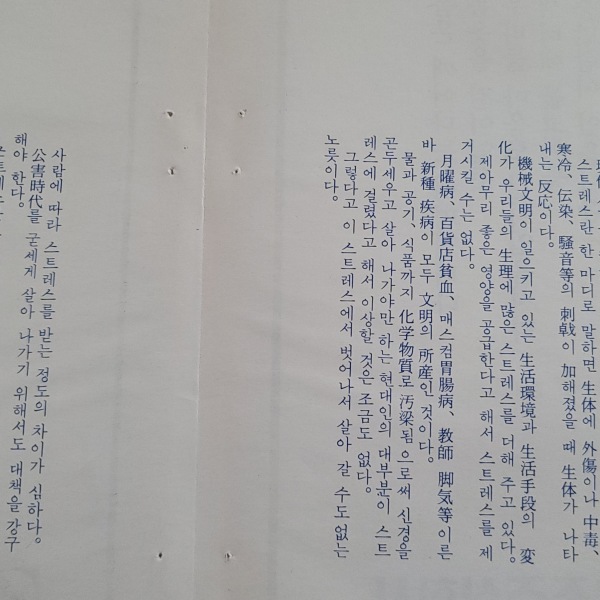 스트레스란 한 마디로 말하면 生体에 外傷이나 中毒、
寒冷、伝染、騷音等의 刺戟이 加해졌을 때 生体가 나타
내는 反応이다。
機械文明이 일으키고 있는 生活環境과 生活手段의 変
化가 우리들의 生理에 많은 스트레스를 더해 주고 있다。
제아무리 좋은 영양을 공급한다고 해서 스트레스를 제
거시킬 수는 없다。
月曜病、百貨店貧血、매스컴胃腸病、教師 脚気等 이른
바 新種 疾病이 모두 文明의 所産인 것이다。
물과 공기、식품까지 化学物質로 汚梁됨으로써 신경을
곤두세우고 살아 나가야만 하는 현대인의 대부분이 스트
레스에 걸렸다고 해서 이상할 것은 조금도 없다。
그렇다고 이 스트레스에서 벗어나서 살아 갈 수도 없는
노릇이다。
사람에 따라 스트레스를 받는 정도의 차이가 심하다。
公害時代를 굳세게 살아 나가기 위해서도 대책을 강구
해야 한다。